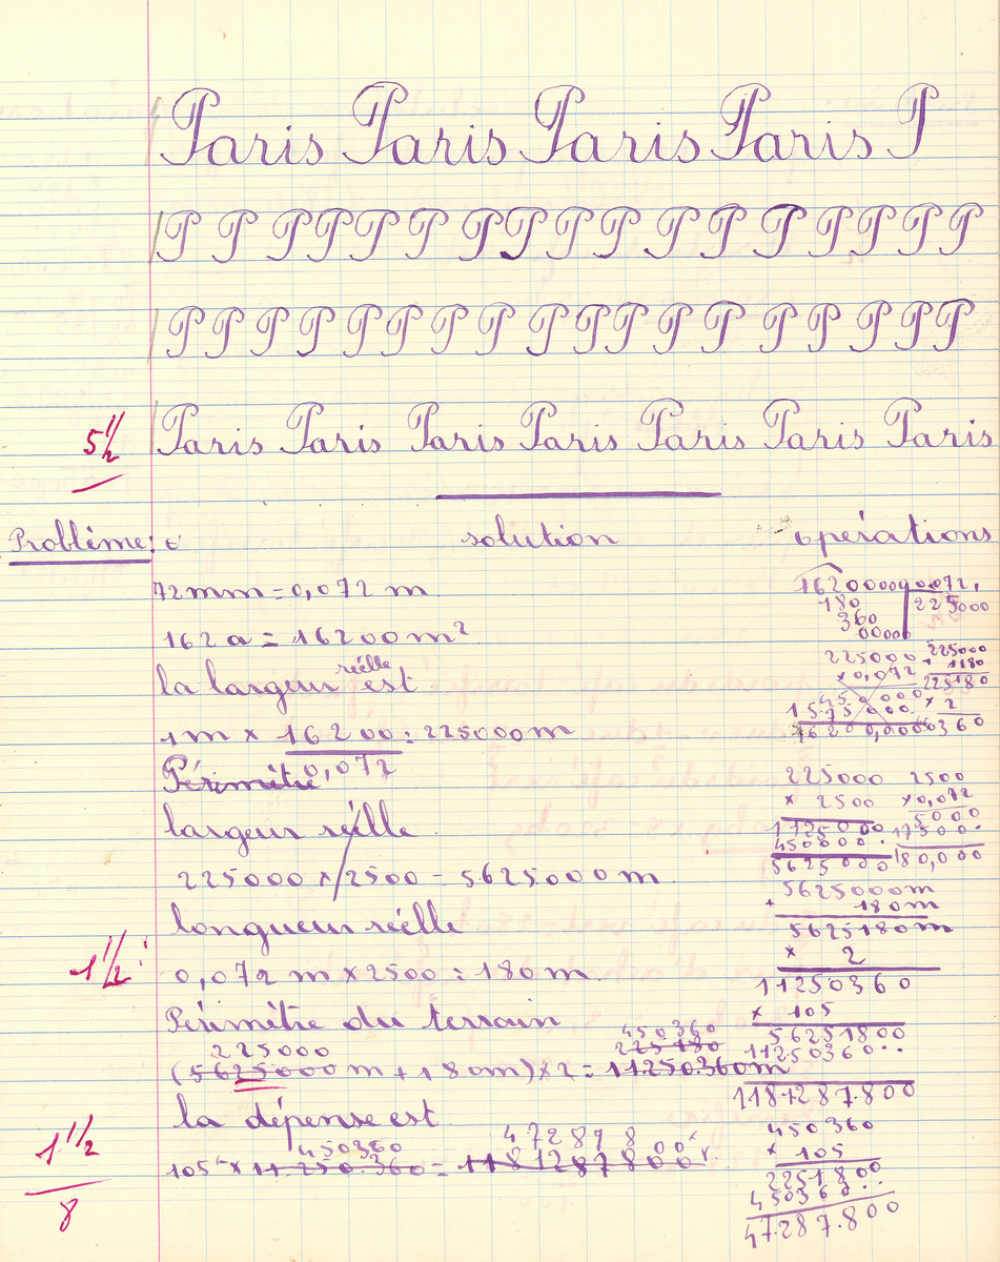 Paris Paris Paris Paris P
P P P P P P P P P P P P P P P P P
P P P P P P P P P P P P P P P P P P
5 1/2
Paris Paris Paris Paris Paris Paris Paris
Problème: solution opérations
72mm = 0,072 m
162 a = 16200 m²
la largeur réelle est
1m x 16200 = 225000m
0,072
Périmètre
largeur réelle
225000 x 2500 = 5625000m
longueur réelle
1 1/2
0,072 m x 2500 = 180 m
Périmètre du terrain
225000 450360
225180
(5625000m + 180m) x 2 = 11250360m
la dépense est
450360 47287800
105 x 11250360 =
1 1/2
8
180
225000
360
00000
225000 225000
x 0,072 180
225180
x 2
225000 2500
x 2500 x 0,072
1125000 5000
450000 17500
5625000 180,000
5625000m
+ 180m
5625180m
x 2
11250360
x 105
56251800
11250360
450360
x 105
2251800
450360
47.287.800